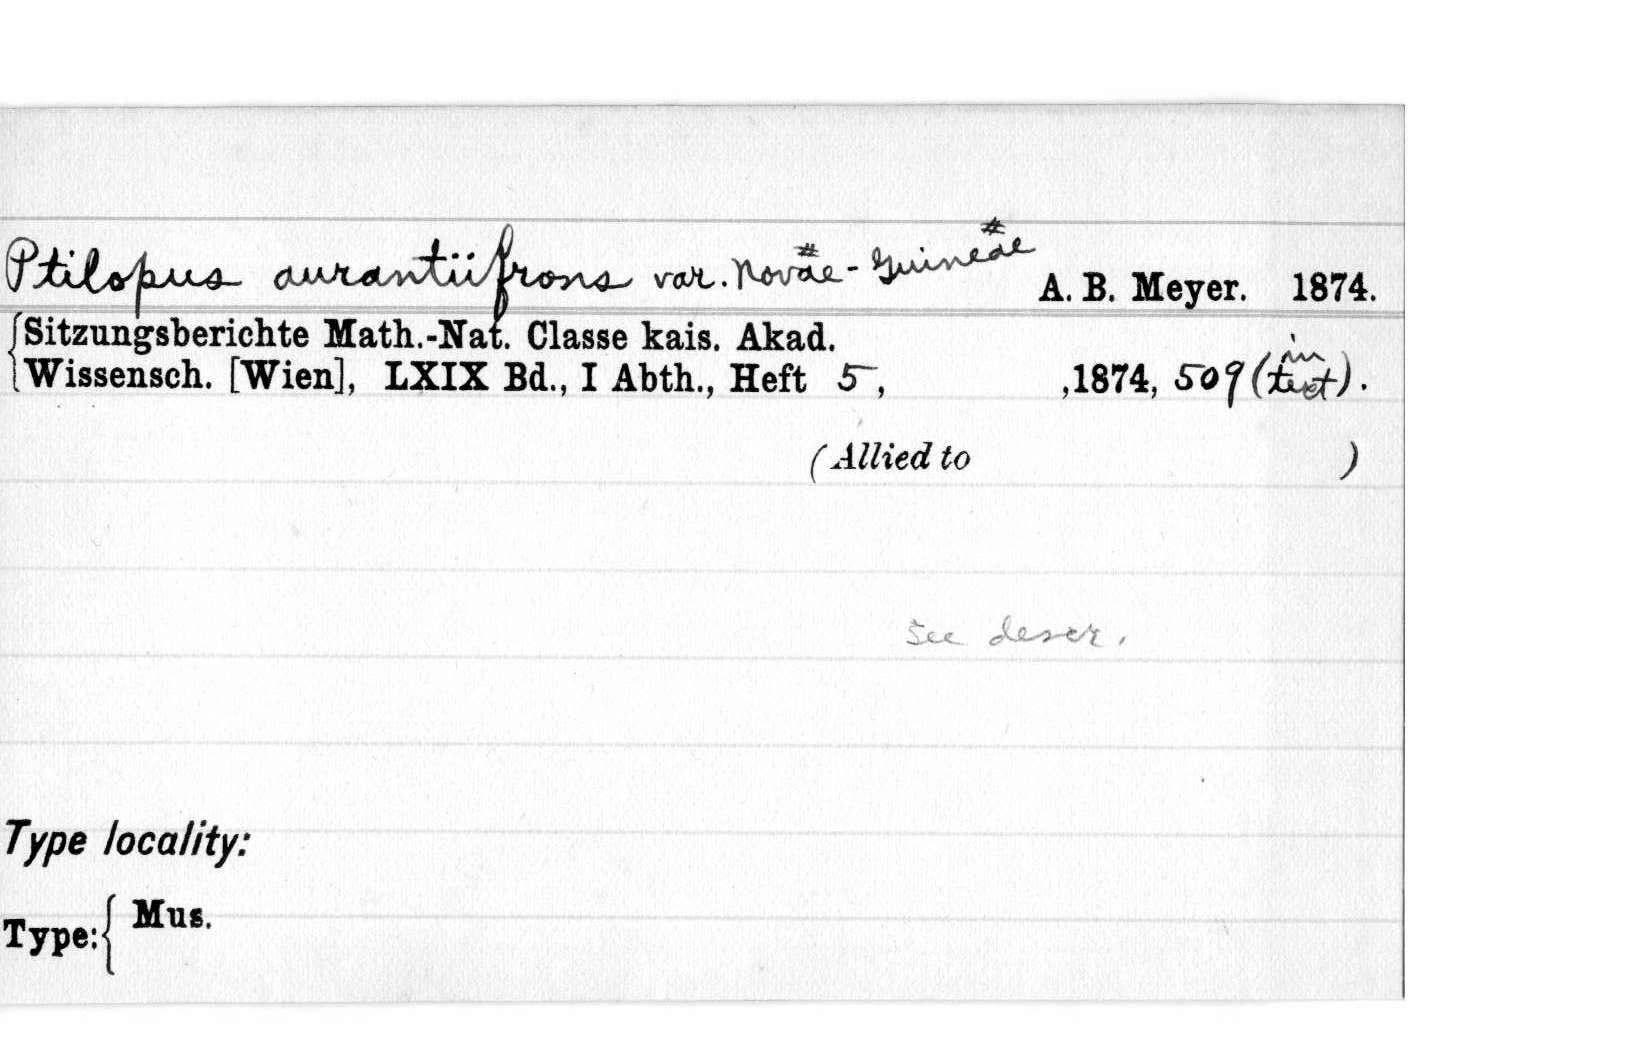 Ptilopus aurantiifrons var. Novae-Guineae A. B. Meyer. 1874.
Sitzungsberichte Math.-Nat. Classe kais. Akad.
Wissensch. [Wien], LXIX Bd., I Abth., Heft 5, ,1874, 509 (in text).
(Allied to )
See descr.
Type locality:
Type: Mus.